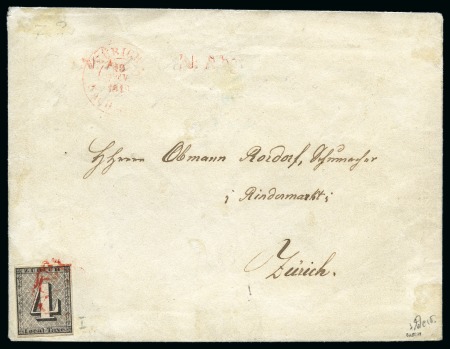 ZÜRICH
HHerrn Obmann Rordorf, Schumacher
; Rindermarkt ;
Zürich.
ZÜRICH
4
Local-Taxe.
I